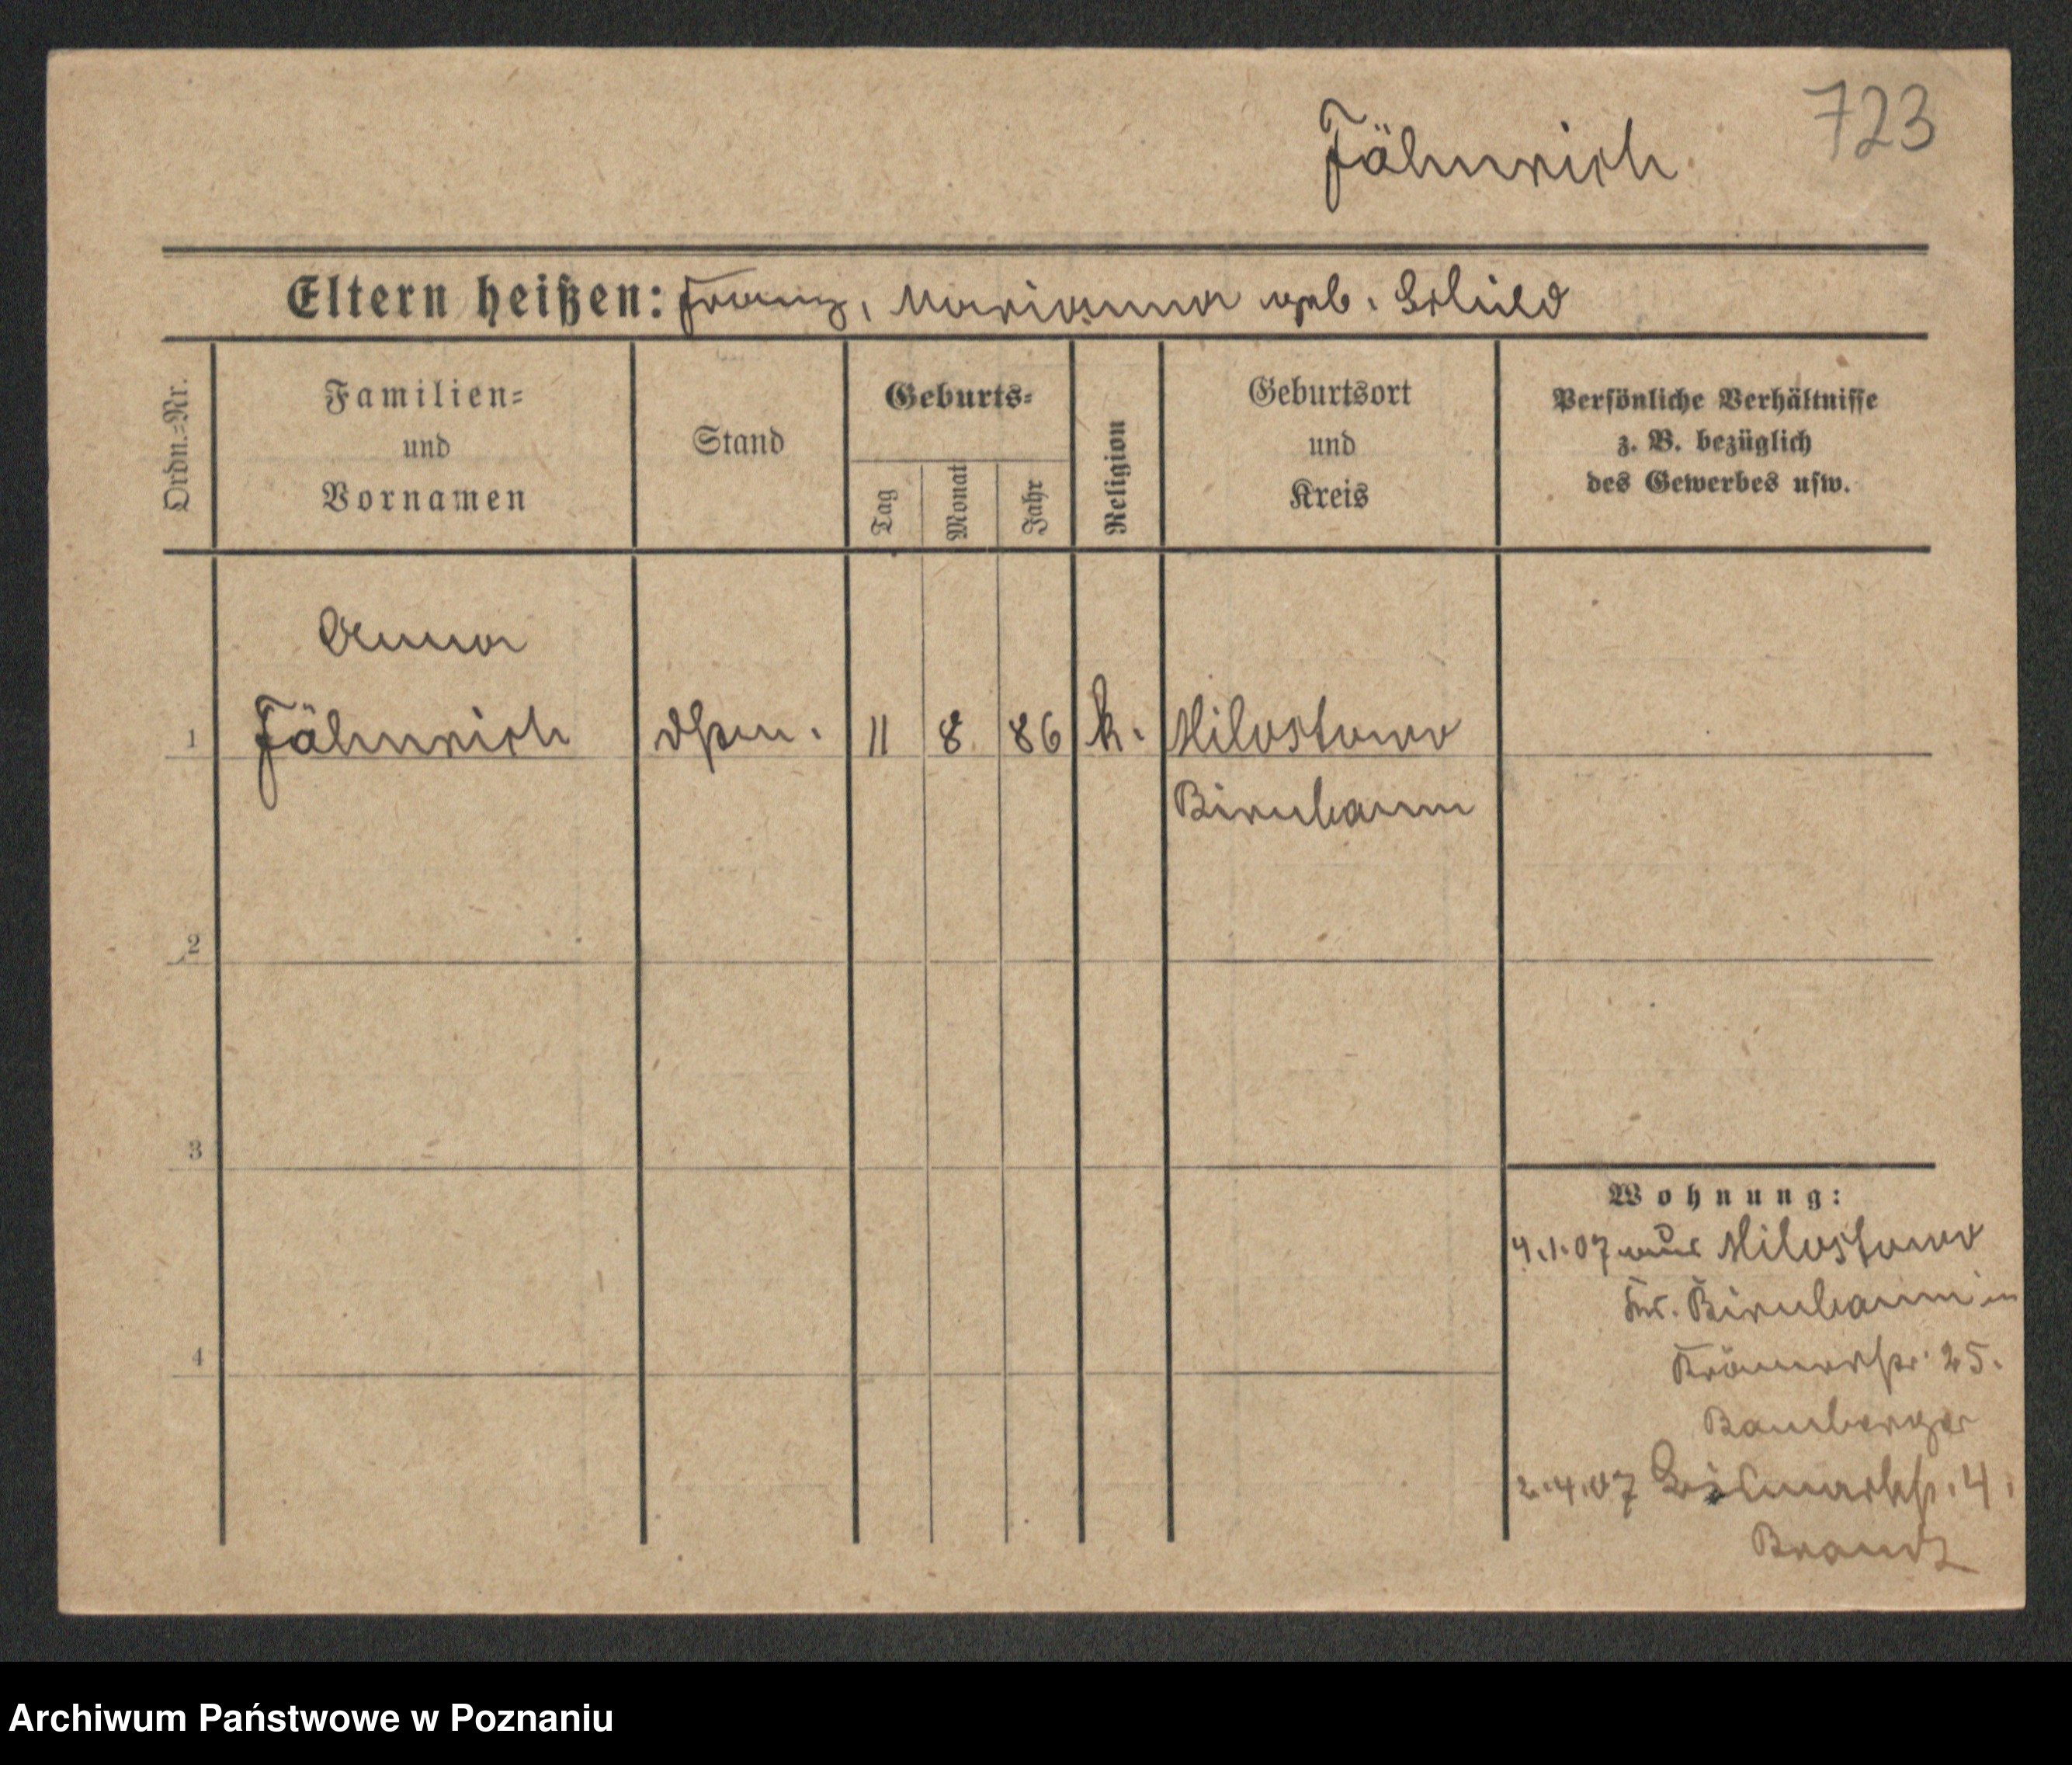 723
Fähnrich
Eltern heißen: Franz, Marianna geb. Schild
Ordn.=Nr.
Familien=
und
Vornamen
Stand
Geburts=
Tag
Monat
Jahr
Religion
Geburtsort
und
Kreis
Persönliche Verhältnisse
z. B. bezüglich
des Gewerbes usw.
Anna
1 Fähnrich 11 8 86 k. Milostowo
Birnbaum
2
3
4
Wohnung:
4.1.07 aus Milostowo
Kr. Birnbaum in
25.
Bamberger
2.4.07 Bismarckstr. 4.
Brandt
Archiwum Państwowe w Poznaniu